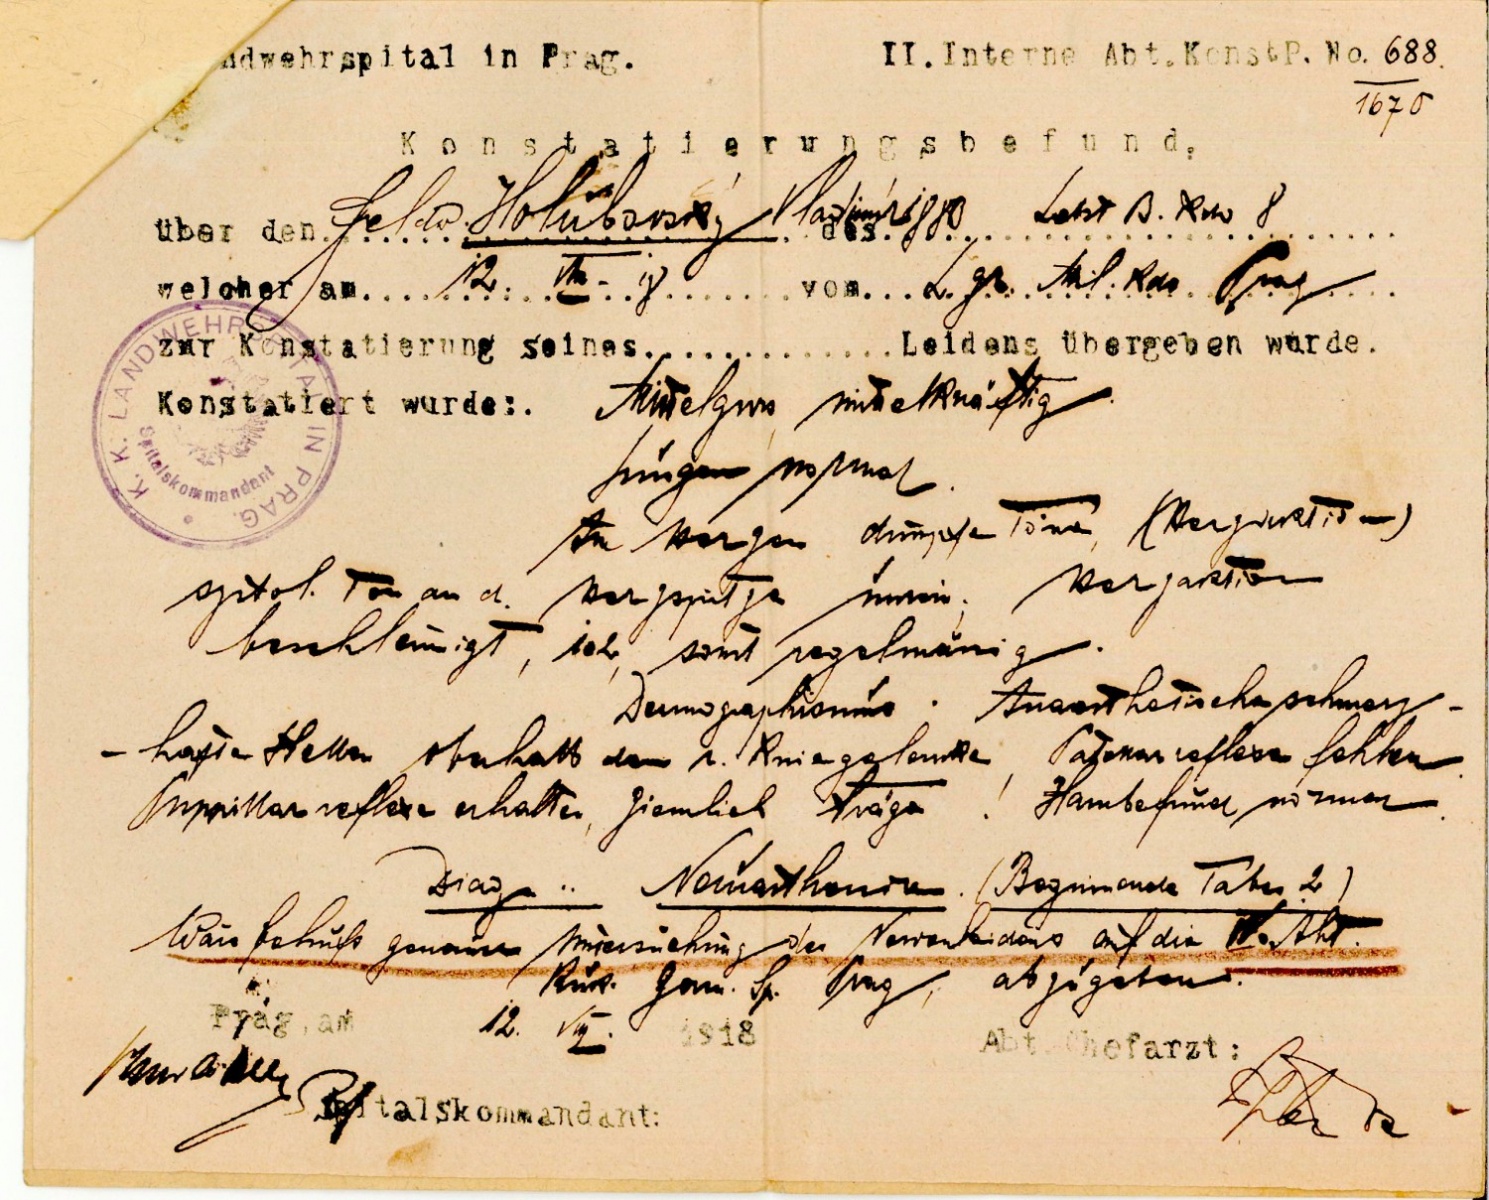 ndwehrspital in Prag. II. Interne Abt. KonstP. No. 688.
1670
Konstatierungsbefund.
über den Holubovsky Vladimir des Lst B. Kdo 8
welcher am 12. VIII. 18 vom Mil. Kdo Prag
zur Konstatierung seines Leidens übergeben wurde.
Konstatiert wurde:. Mittelgross, mittelkräftig.
Lungen normal.
Am Herzen dumpfe Töne, (Herzaktion)
systol. Ton an d. Herzspitze unrein, Herzaktion
beschleunigt, 102, sonst regelmässig.
Dermographismus. Anaesthetische schmerz-
-hafte Stellen oberhalb dem r. Kniegelenke, Patellarreflexe fehlen.
Pupillarreflexe erhalten, ziemlich träge! Harnbefund normal.
Diag.: Neurasthenie. (Beginnende Tabes?)
Wäre behufs genauer Untersuchung des Nervenleidens auf die Abt.
Garn. Sp. Prag, abzugeben.
Prag, am 12. VIII. 1918 Abt. Chefarzt:
Spitalskommandant:
K. K. LANDWEHRSPITAL IN PRAG.
Spitalskommandant